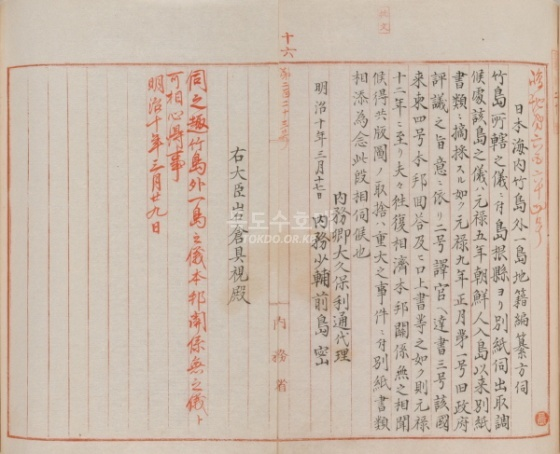 日本海内竹島外一島地籍編纂方伺
竹島所轄之儀ニ付島根縣ヨリ別紙伺出取調
候處該島之儀ハ元禄五年朝鮮人入島以来別紙
書類ニ摘採スル如ク元禄九年正月第一号旧政府
評議之旨意ニ依リ二号譯官ヘ達書三号該國
来柬四号本邦回答及ヒ口上書等之如ク則元禄
十二年ニ至リ夫々往復相濟本邦關係無之相聞
候得共版圖ノ取捨ハ重大之事件ニ付別紙書類
相添為念此段相伺候也
内務卿大久保利通代理
明治十年三月十七日 内務少輔前島密
右大臣岩倉具視殿
伺之趣竹島外一島之儀本邦関係無之儀ト
可相心得事
明治十年三月廿九日
十六
内務省
독도수호대
TOKDO.OR.KR